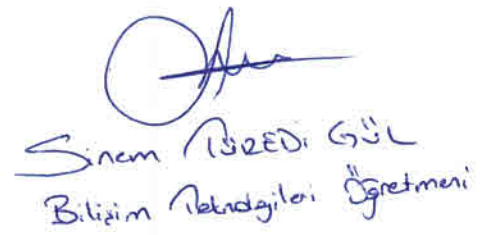 Sinem TÜREDİ GÜL
Bilişim Teknolojileri Öğretmeni